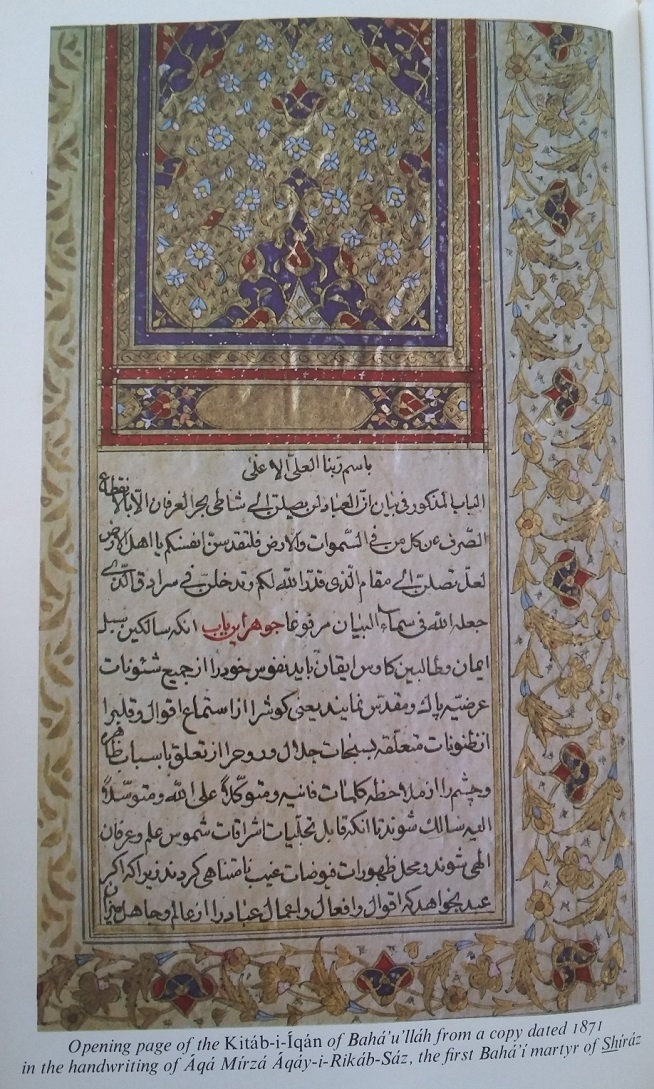 باسم ربنا العلی الاعلی
الباب المذکور فی بیان ان العباد لن یصلن الی شاطی بحر العرفان الا بالانقطاع
الصرف عن کل من فی السموات والارض فلتقدسن انفسکم یا اهل الارض
لعل تصلن الی مقام الذی قدر الله لکم و تدخلن فی سرادق الذی
جعله الله فی سماء البیان مرفوعا جوهر این باب انکه سالکین سبیل
ایمان و طالبین کاوس ایقان باید نفوس خود را از جمیع شئونات
عرضیه پاک و مقدس نمایند یعنی کوشرا از استماع اقوال و قلبرا
از ظنونات متعلقه بسبحات جلال و روحرا از تعلق باسباب ظاهره
و چشم را از ملاحظه کلمات فانیه و متوکلاً علی الله و متوسلاً
الیه سالک شوند تا انکه قابل تجلیات اشراقات شموس علم و عرفان
الهی شوند و محل ظهورات فیوضات غیب نامتناهی کردند زیرا که اکر
عبد بخواهد که اقوال و افعال و اعمال عباد را از عالم و جاهل میزان
Opening page of the Kitáb-i-Íqán of Bahá’u’lláh from a copy dated 1871
in the handwriting of Áqá Mírzá Áqáy-i-Rikáb-Sáz, the first Bahá’í martyr of Shíráz